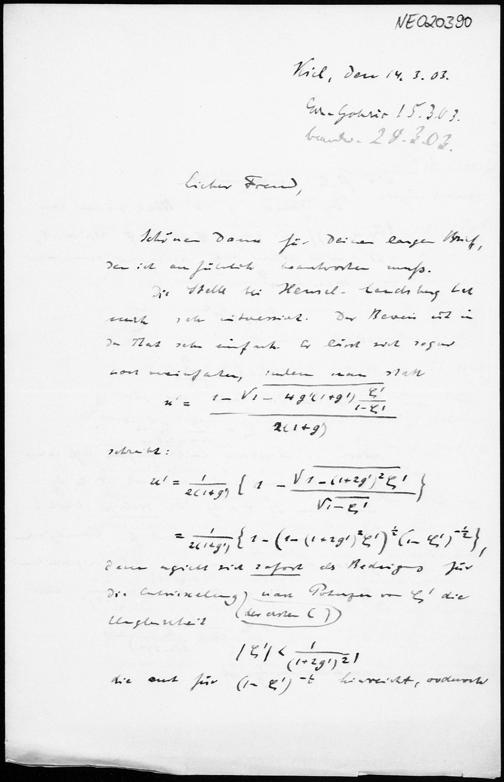 NEO20390
Kiel, den 14.3.03.
15.3.03.
28.3.03.
Lieber Freund,
Schönen Dank für Deinen langen Brief,
den ich ausführlich beantworten muß.
Die Stelle bei Hensel-Landsberg hat
mich sehr interessirt. Der Beweis ist in
der That sehr einfach. Er lässt sich sogar
noch vereinfachen, indem man statt
u' = (1 - √(1 - 4g'(1+g') ζ'/(1-ζ'))) / 2(1+g')
schreibt:
u' = 1/2(1+g') { 1 - √(1-(1+2g')²ζ') / √(1-ζ') }
= 1/2(1+g') { 1 - (1-(1+2g')²ζ')^½ (1-ζ')^-½ },
dann ergiebt sich sofort als Bedingung für
die Entwickelung nach Potenzen von ζ' die
Ungleichheit (der ersten ( ))
|ζ'| < 1/|(1+2g')²|
die auch für (1-ζ')^-½ hinreicht,